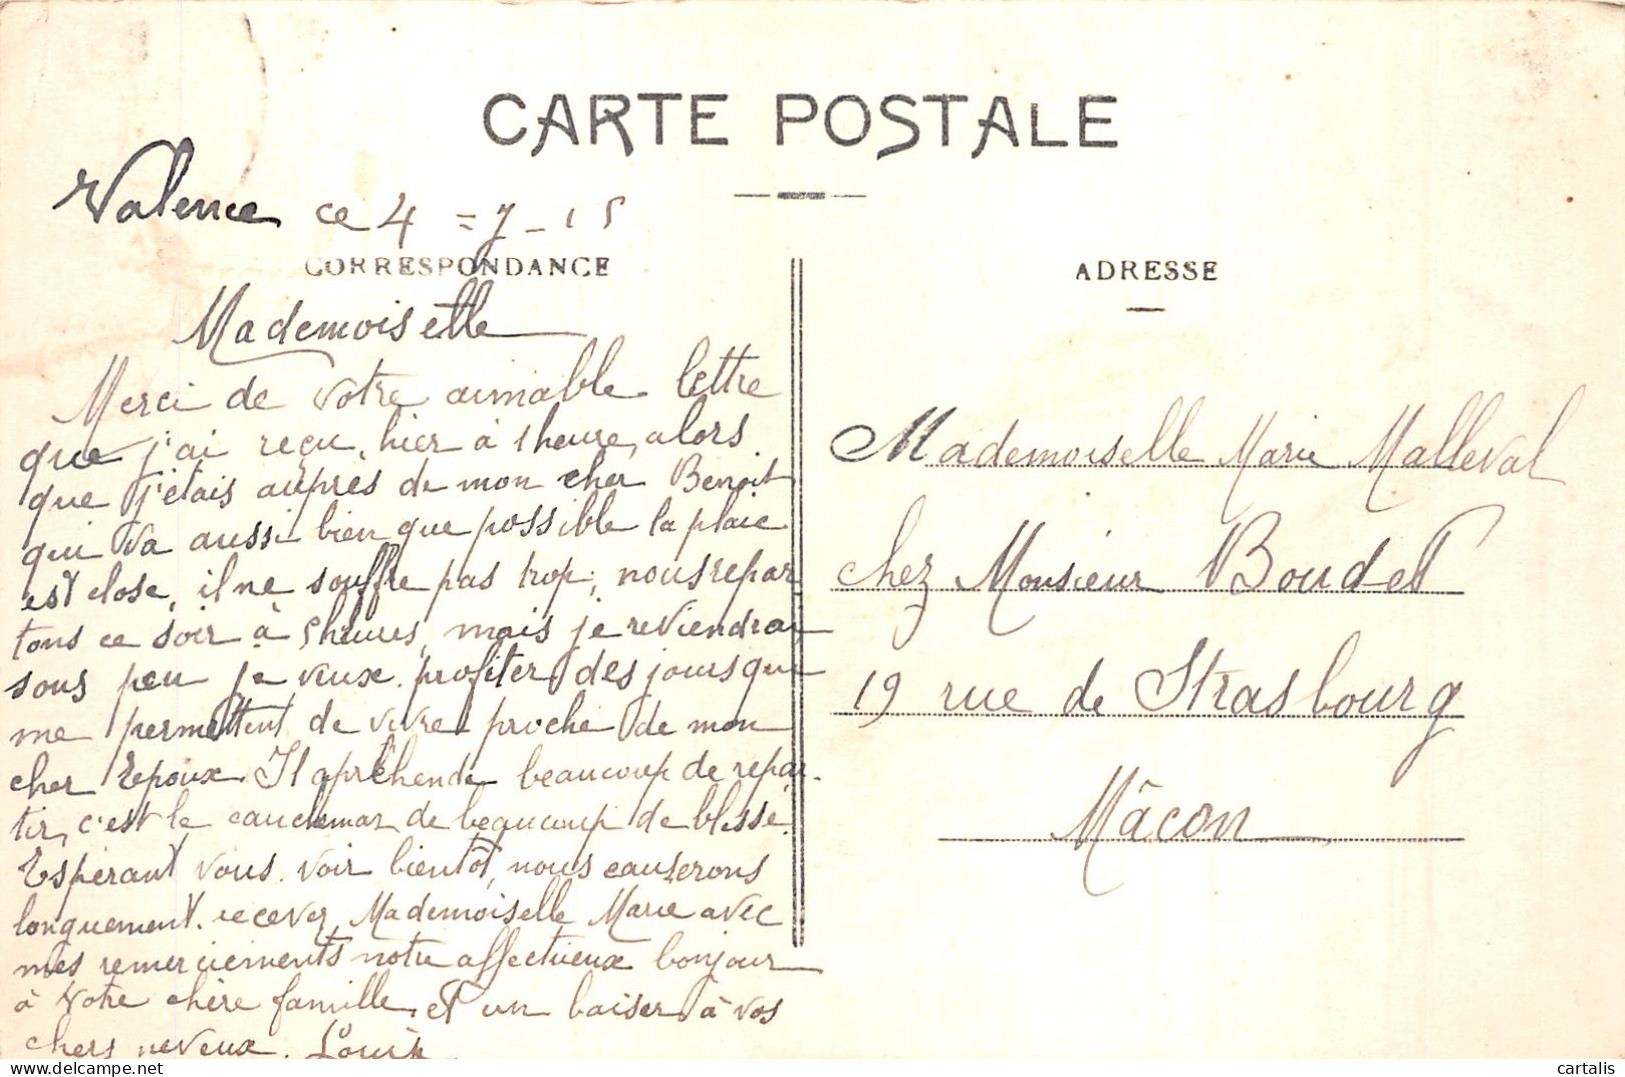 CARTE POSTALE
Valence ce 4 = 7 - 15
CORRESPONDANCE
Mademoiselle
Merci de votre aimable lettre
que j'ai reçu, hier à 1 heure, alors
que j'étais auprès de mon cher Benoit
qui va aussi bien que possible la plaie
est close, il ne souffre pas trop; nous repar
tons ce soir à 5 heures, mais je reviendrai
sous peu je veux profiter des jours qui
me permettent de vivre proche de mon
cher Epoux. Il apréhende beaucoup de repar-
tir, c'est le cauchemar de beaucoup de blessé.
Espérant vous voir bientôt, nous causerons
longuement. recevez Mademoiselle Marie avec
mes remerciements notre affectueux bonjour
à votre chère famille, et un baiser à vos
chers neveux.
ADRESSE
Mademoiselle Marie Malleval
chez Monsieur Boudet
19 rue de Strasbourg
Mâcon
www.delcampe.net
cartalis